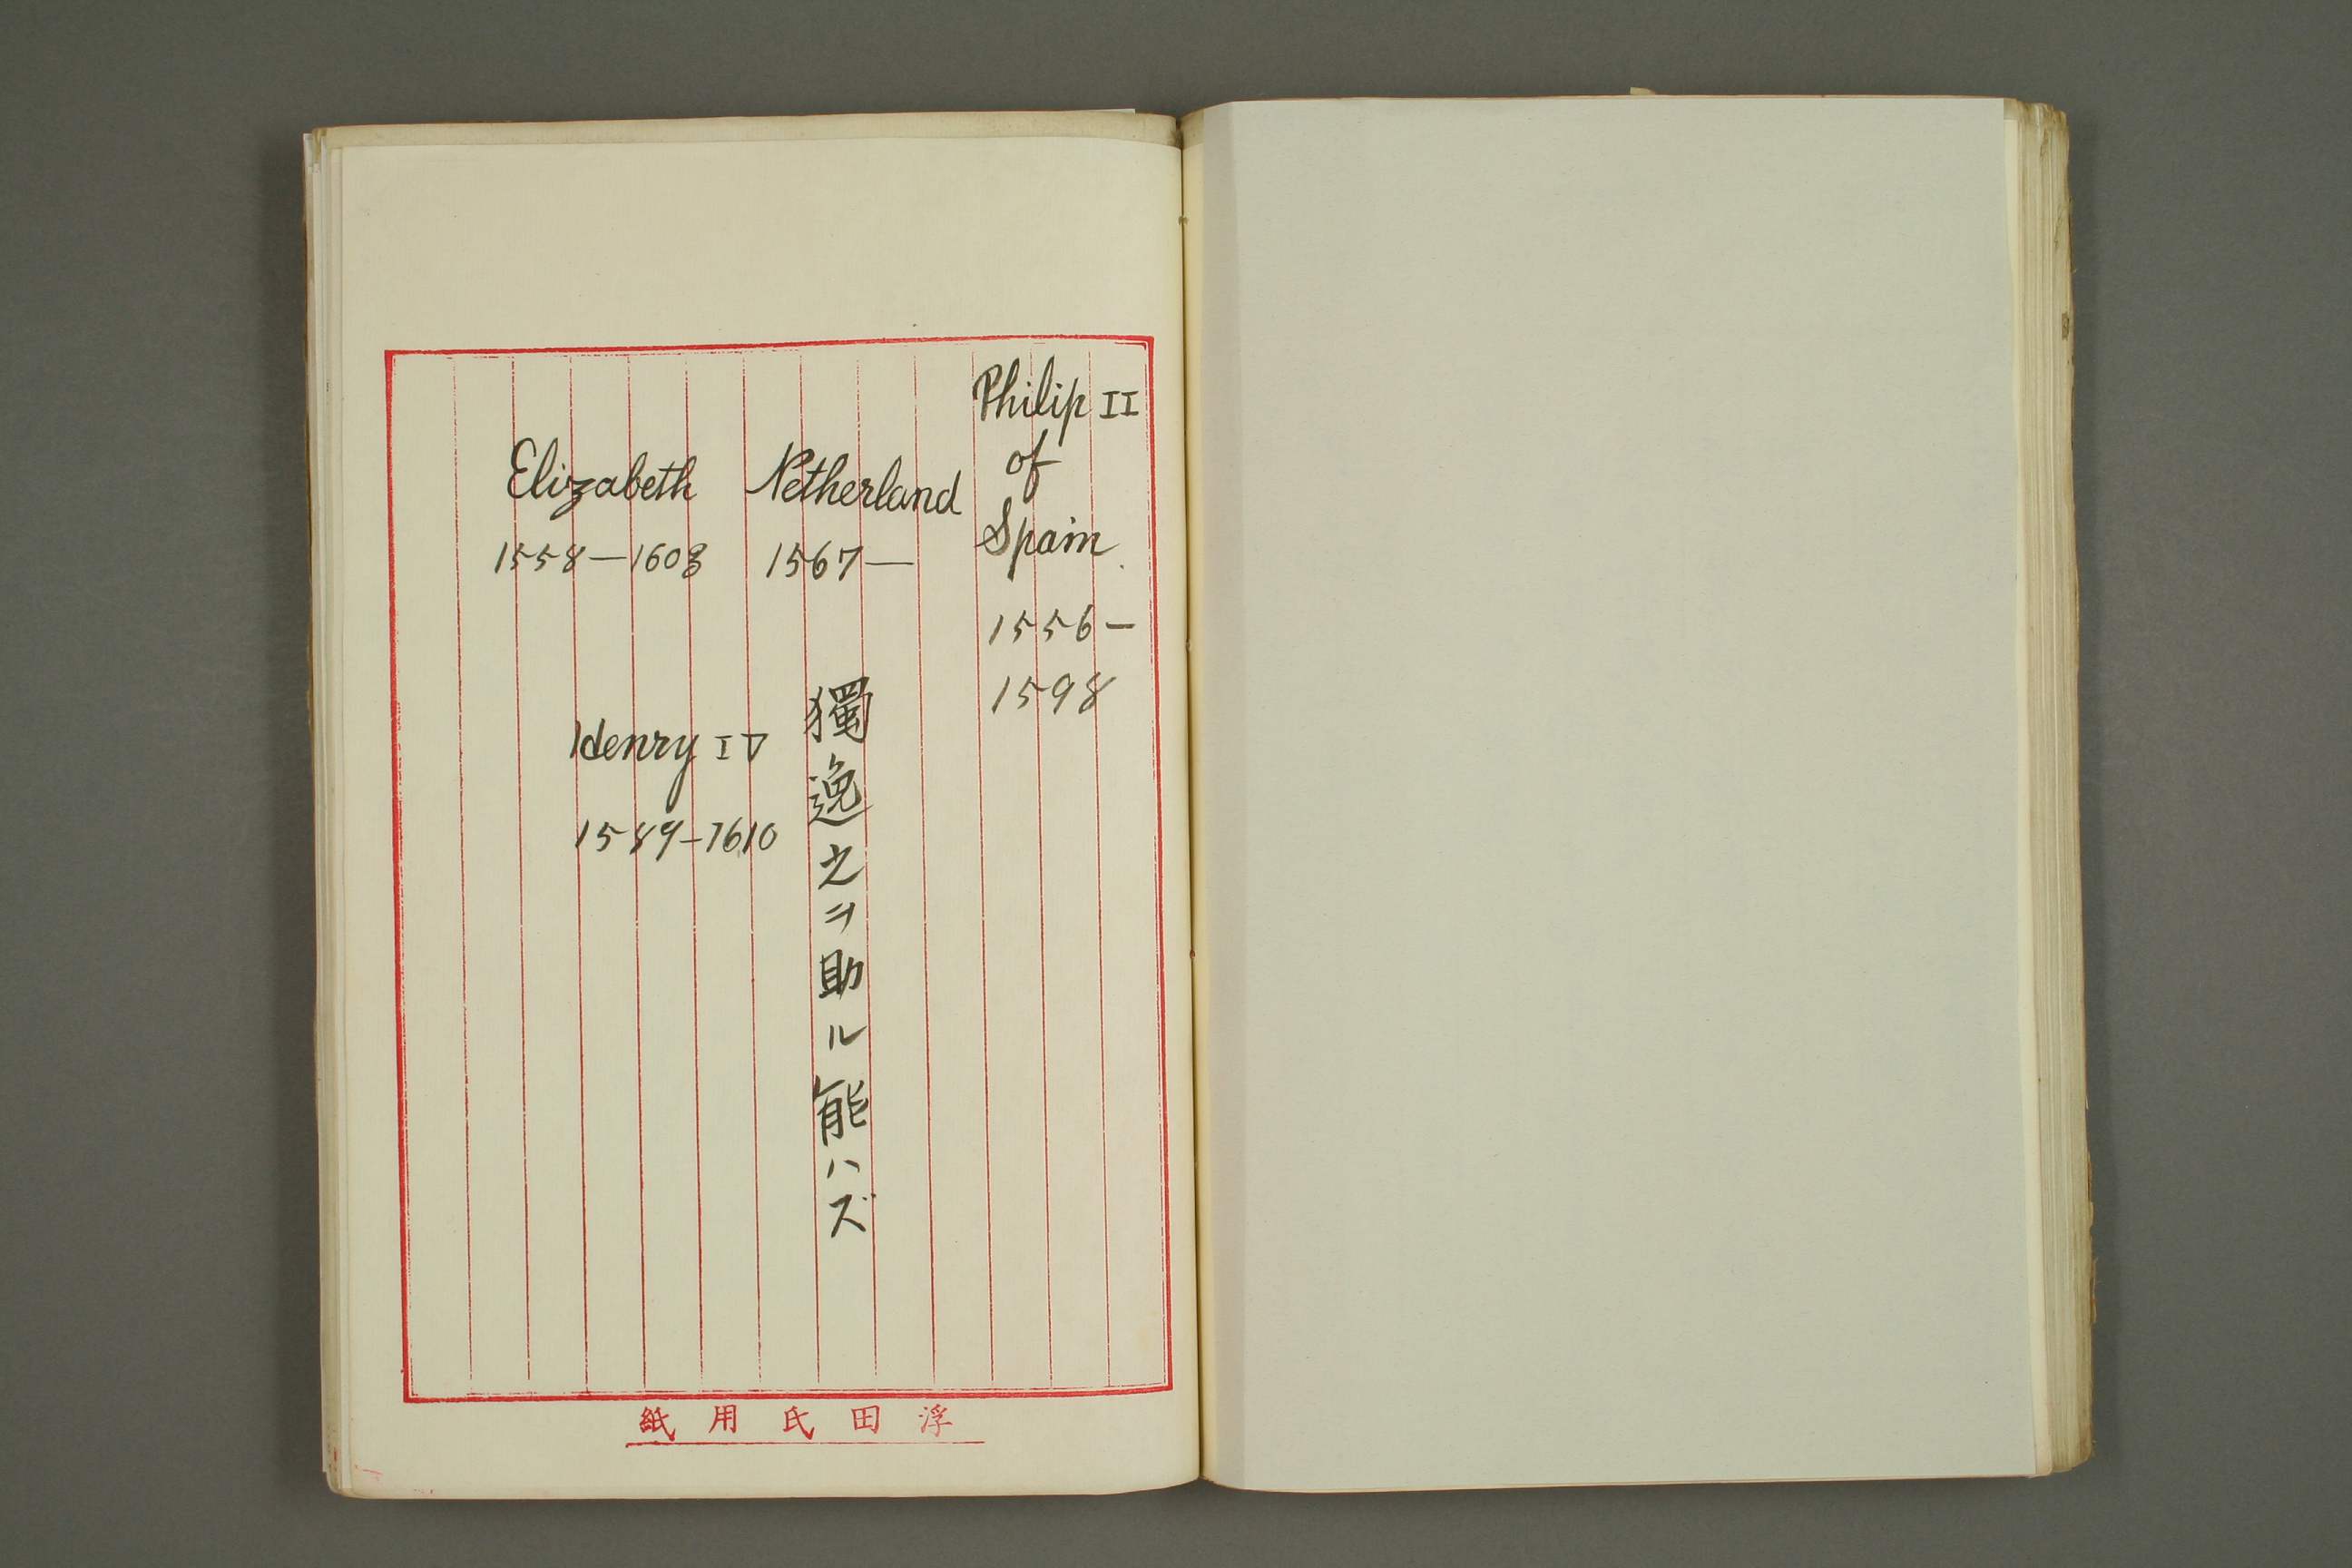 Philip II
of
Spain
1556-
1598
Netherland
1567—
獨逸之ヲ助ル能ハズ
Elizabeth
1558—1603
Henry IV
1589-1610
浮田氏用紙